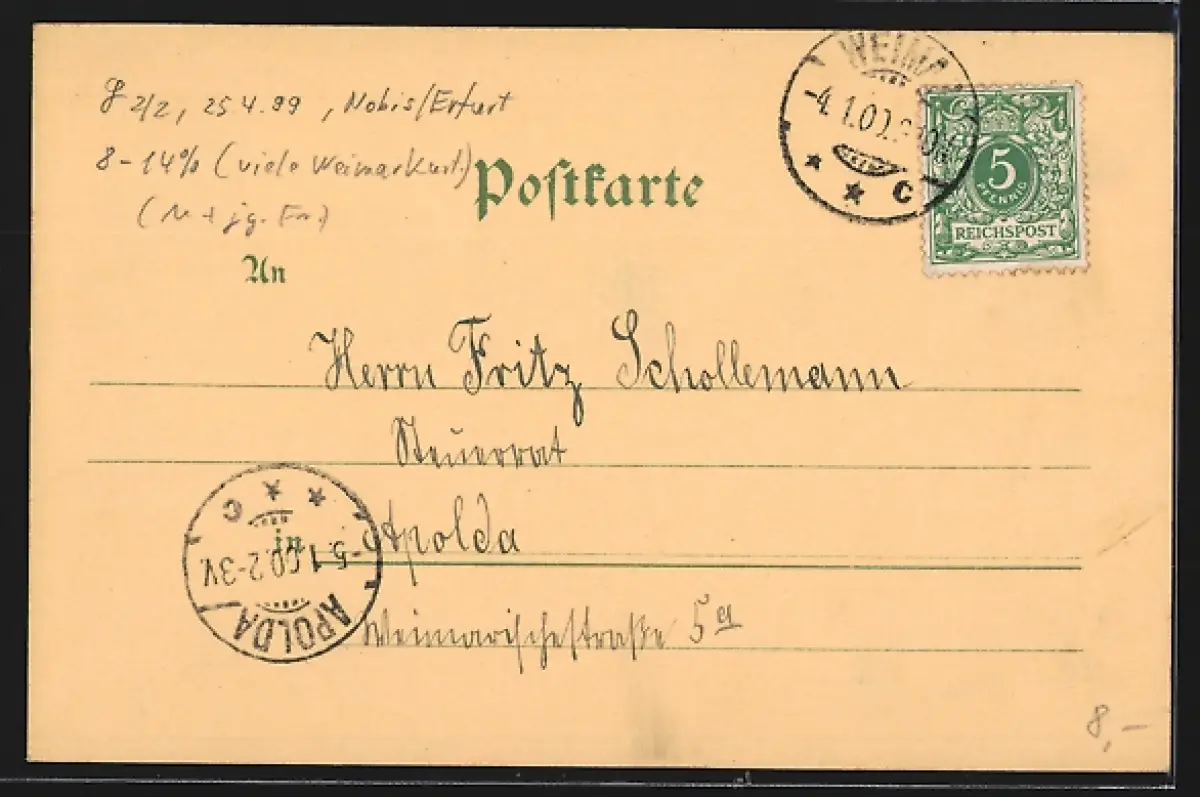 2/2, 25.4.99, Nobis/Erfurt
8-14% (viele Weimarkart.)
Postkarte
An
WEIMA
-4.1.00.
C
5
PFENNIG
REICHSPOST
Herrn Fritz Schollemann
Steuerrat
in Apolda
Weimarischestraße 5a
APOLDA
-5.1.00.2-3V.
C
8,-